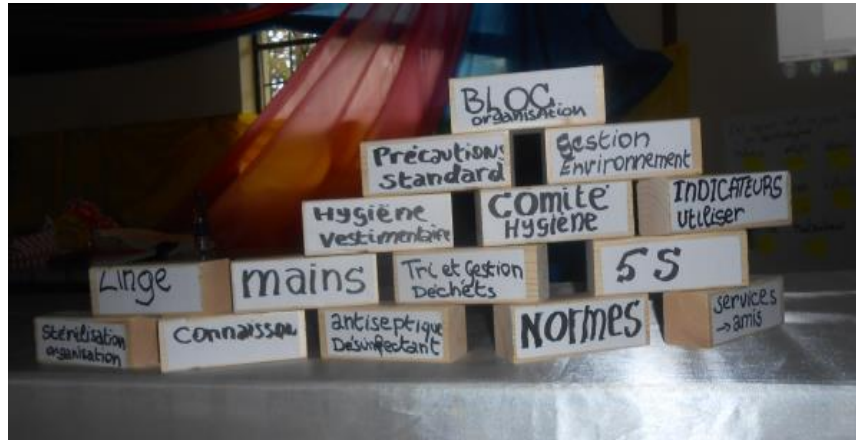 BLOC
organisation
Précautions
standard
gestion
Environnement
Hygiène
Vestimentaire
Comité
Hygiène
INDICATEURS
utiliser
Linge
mains
Tri et Gestion
Déchets
5S
Stérilisation
organisation
antiseptique
Désinfectant
NORMES
services
→ amis